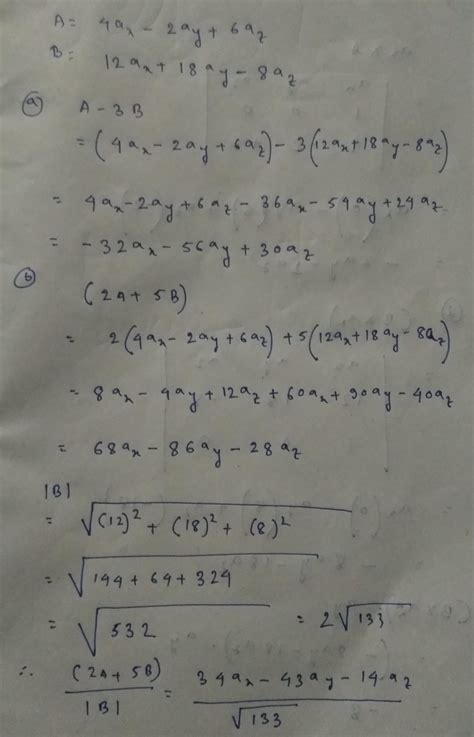 A = 4aₓ - 2a_y + 6a_z
B = 12aₓ + 18a_y - 8a_z
(a) A - 3B
= (4aₓ - 2a_y + 6a_z) - 3(12aₓ + 18a_y - 8a_z)
= 4aₓ - 2a_y + 6a_z - 36aₓ - 54a_y + 24a_z
= -32aₓ - 56a_y + 30a_z
(b)
(2A + 5B)
= 2(4aₓ - 2a_y + 6a_z) + 5(12aₓ + 18a_y - 8a_z)
= 8aₓ - 4a_y + 12a_z + 60aₓ + 90a_y - 40a_z
= 68aₓ - 86a_y - 28a_z
|B|
= √((12)² + (18)² + (8)²)
= √(144 + 64 + 324)
= √532 = 2√133
∴ (2A + 5B) / |B| = (34aₓ - 43a_y - 14a_z) / √133